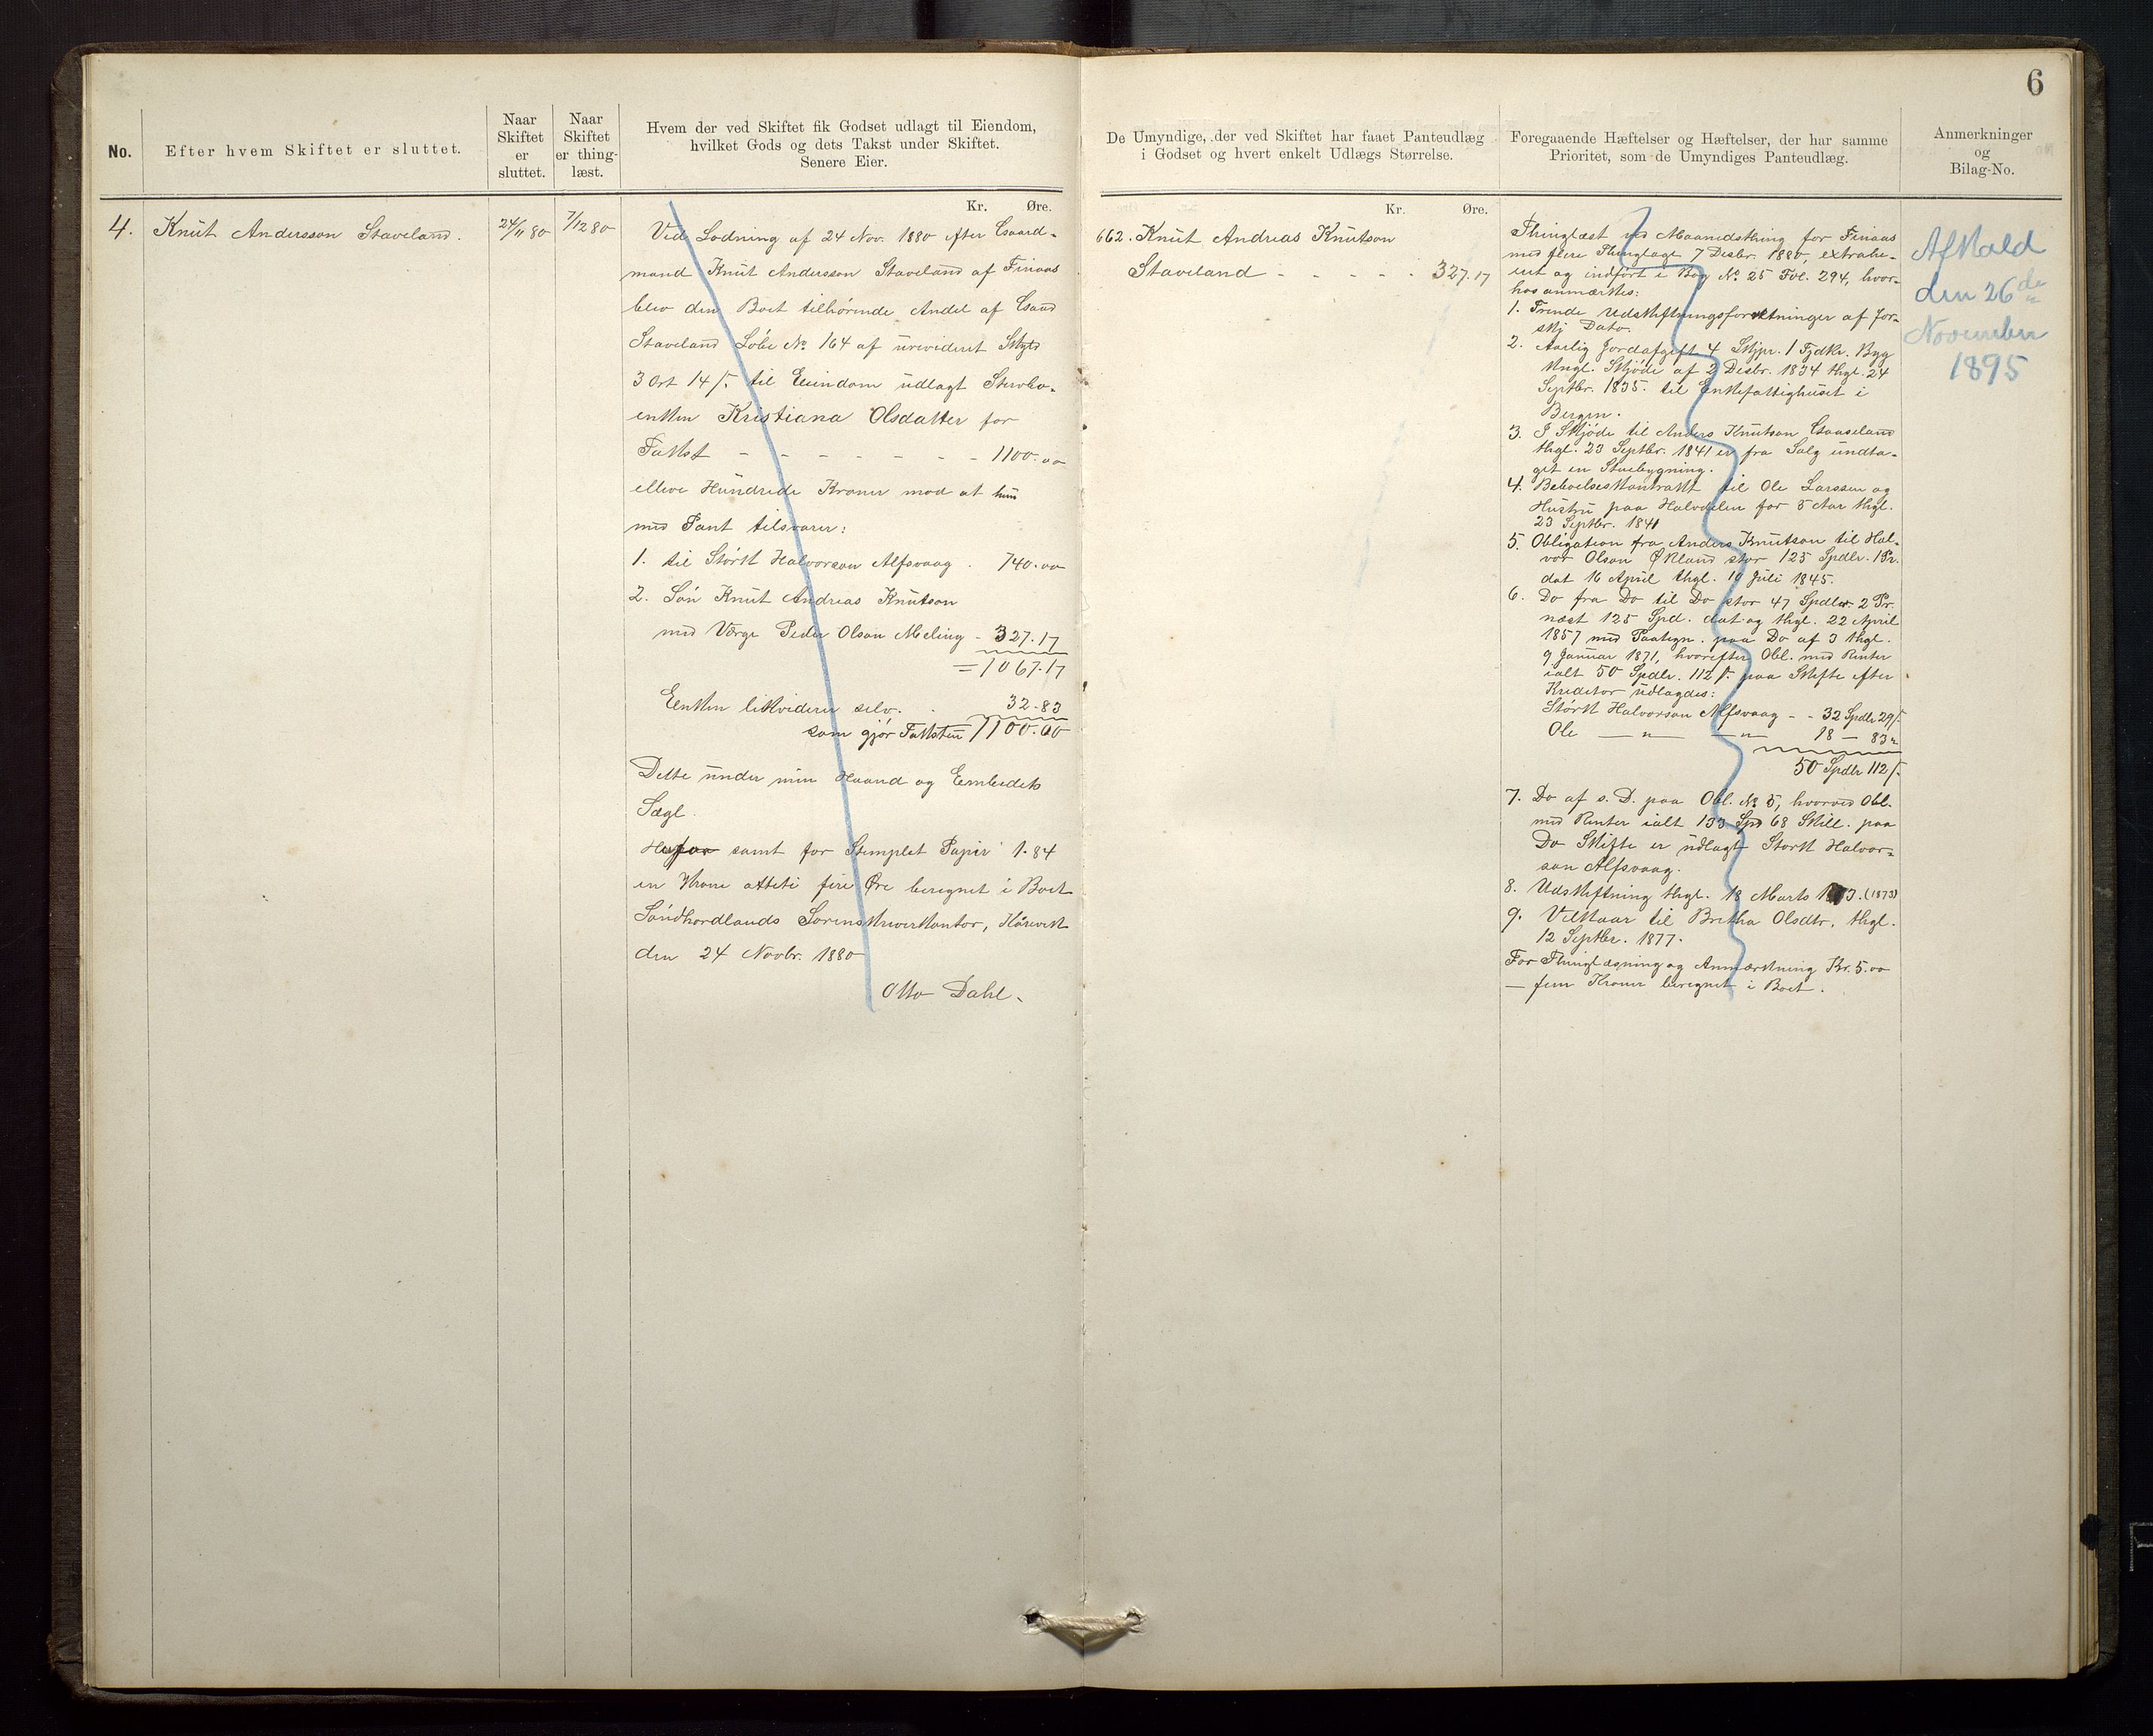 6
No.
Efter hvem Skiftet er sluttet.
Naar
Skiftet
er
sluttet.
Naar
Skiftet
er thing-
læst.
Hvem der ved Skiftet fik Godset udlagt til Eiendom,
hvilket Gods og dets Takst under Skiftet.
Senere Eier.
De Umyndige, der ved Skiftet har faaet Panteudlæg
i Godset og hvert enkelt Udlægs Størrelse.
Foregaaende Hæftelser og Hæftelser, der har samme
Prioritet, som de Umyndiges Panteudlæg.
Anmerkninger
og
Bilag-No.
4.
Knut Andersson Staveland.
24/11 80
7/12 80
Kr. Øre.
Ved Lodning af 24 Nov. 1880 efter Gaard-
mand Knut Andersson Staveland af Finaas
blev den Boet tilhörende Andel af Gaard
Staveland Löbe No 164 af urevideret Skyld
3 Ort 14 ß. til Eiendom udlagt Sterbo-
enken Kristiana Olsdatter for
Takst - - - - - - - 1100.00
elleve Hundrede Kroner mod at hun
med Pant tilsvarer:
1. til Störk Halvorson Alfsvaag . 740.00
2. Sön Knut Andreas Knutson
med Værge Peder Olson Meling - 327.17
= 1067.17
Enken likviderer selv. - 32.83
som gjör Taksten 1100.00
Dette under min Haand og Embedets
Segl.
samt for Stemplet Papir 1.84
en Krone otteti fire Öre beregnet i Boet
Söndhordlands Sorenskriverkontor,
den 24 Novbr. 1880
Otto Dahl.
Kr. Øre.
662. Knut Andreas Knutson
Staveland - - - - . 327.17
Thinglæst ved Maanedsthing for Finaas
med flere Thinglage 7 Desbr. 1880, extrahe-
ret og indfört i Bog No 25 Fol. 294, hvor-
hos anmærkes:
1. Trende Udskiftningsforretninger af for-
skj Dato.
2. Aarlig Jordafgift 4 Skjpr. 1 Fjdkr. Byg
Skjöde af 2 Desbr. 1834 thgl. 24
Septbr. 1835. til Enkefattighuset i
Bergen.
3. I Skjöde til Anders Knutson
thgl. 23 Septbr. 1841 er fra Salg undta-
get en Stuebygning.
4. Beboelseskontrakt til Ole Larssen og
Hustru paa Halvdelen for 5 Aar thgl.
23 Septbr. 1841
5. Obligation fra Anders Knutson til Hal-
vor Olson Økland stor 125 Spdlr. 1 Pr.
dat 16 April thgl. 10 Juli 1845.
6. Do fra Do til Do stor 47 Spdlr. 2 Pr.
næst 125 Spd. dat og thgl. 22 April
1857 med Paategn. paa Do af 3 thgl.
9 Januar 1871, hvorefter Obl. med Renter
ialt 50 Spdlr. 112 ß. paa Skifte efter
Kreditor udlagdes:
Störk Halvorson Alfsvaag - - 32 Spdlr 29 ß.
Ole — " — — " 18 — 83 "
50 Spdlr 112 ß.
7. Do af s. D. paa Obl. No 5, hvorved Obl.
med Renter ialt 133 Spd 68 Skill. paa
Do Skifte er udlagt Störk Halvor-
son Alfsvaag.
8. Udskiftning thgl. 18 Marts (1873)
9. Vilkaar til Britha Olsdtr. thgl.
12 Septbr. 1877.
For Thinglæsning og Anmærkning Kr. 5.00
— fem Kroner beregnet i Boet.
Afkald
den 26de
November
1895